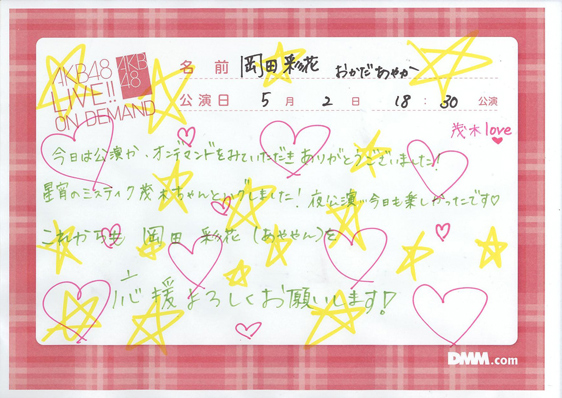 AKB48
LIVE!!
ON DEMAND
AKB
48
名前 岡田彩花 おかだあやか
公演日 5月2日 18:30公演
茂木love
今日は公演か、オンデマンドをみていただきありがとうございました!
星宙のミスティク茂木ちゃんと、グしました! 夜公演…今日も楽しかったです♡
これからも 岡田 彩花(あややん)を
応援よろしくお願いします!
DMM.com